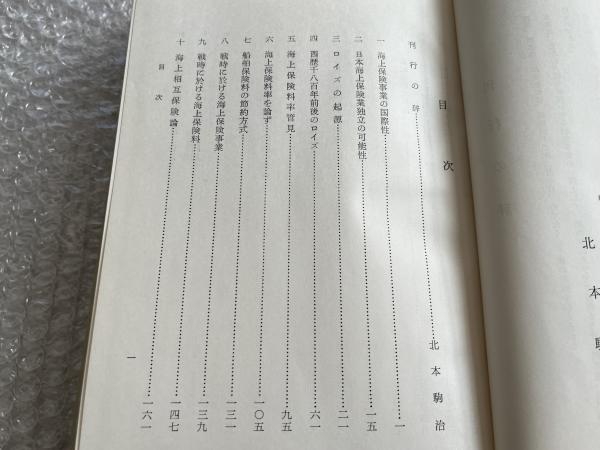 目次
刊行の辞……北本駒治
一 海上保険事業の国際性……一
二 日本海上保険業独立の可能性……一五
三 ロイズの起源……二一
四 西歴千八百年前後のロイズ……六一
五 海上保険料率管見……九五
六 海上保険料率を論ず……一〇五
七 船舶保険料の節約方式……一三一
八 戦時に於ける海上保険事業……一三九
九 戦時に於ける海上保険料……一四七
十 海上相互保険論……一六一
目次
一
北本